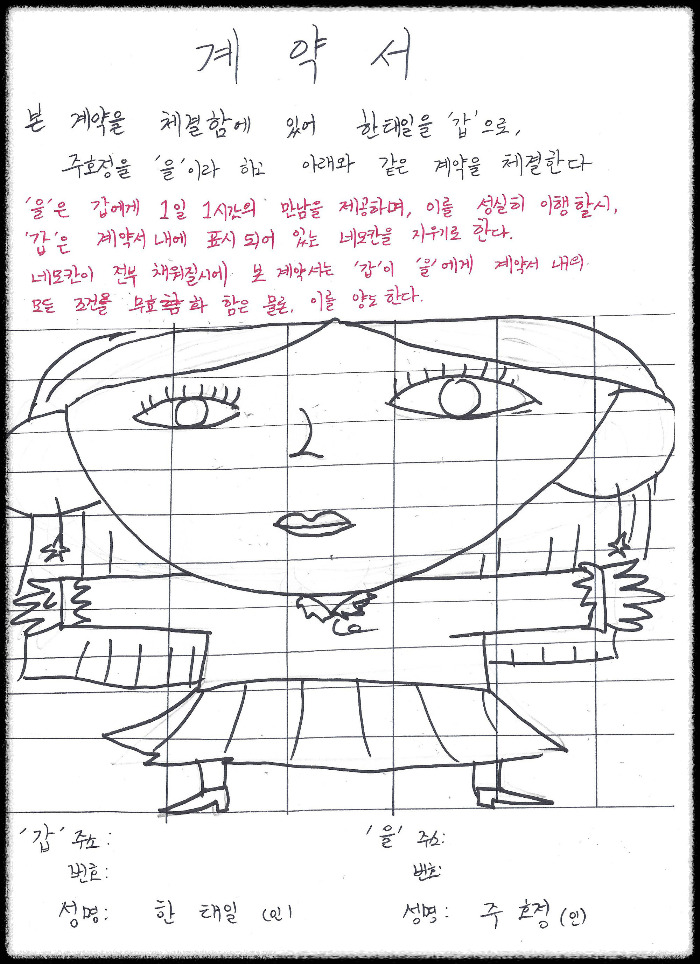 계약서
본 계약을 체결함에 있어 한태일을 '갑'으로,
주호정을 '을'이라 하고 아래와 같은 계약을 체결한다
'을'은 갑에게 1일 1시간의 만남을 제공하며, 이를 성실히 이행할시,
'갑'은 계약서 내에 표시되어 있는 네모칸을 지우기로 한다.
네모칸이 전부 채워질시에 본 계약서는 '갑'이 '을'에게 계약서 내의
모든 조건을 무효화 함은 물론, 이를 양도한다.
'갑' 주소:
번호:
성명: 한 태일 (인)
'을' 주소:
번호:
성명: 주 호정 (인)